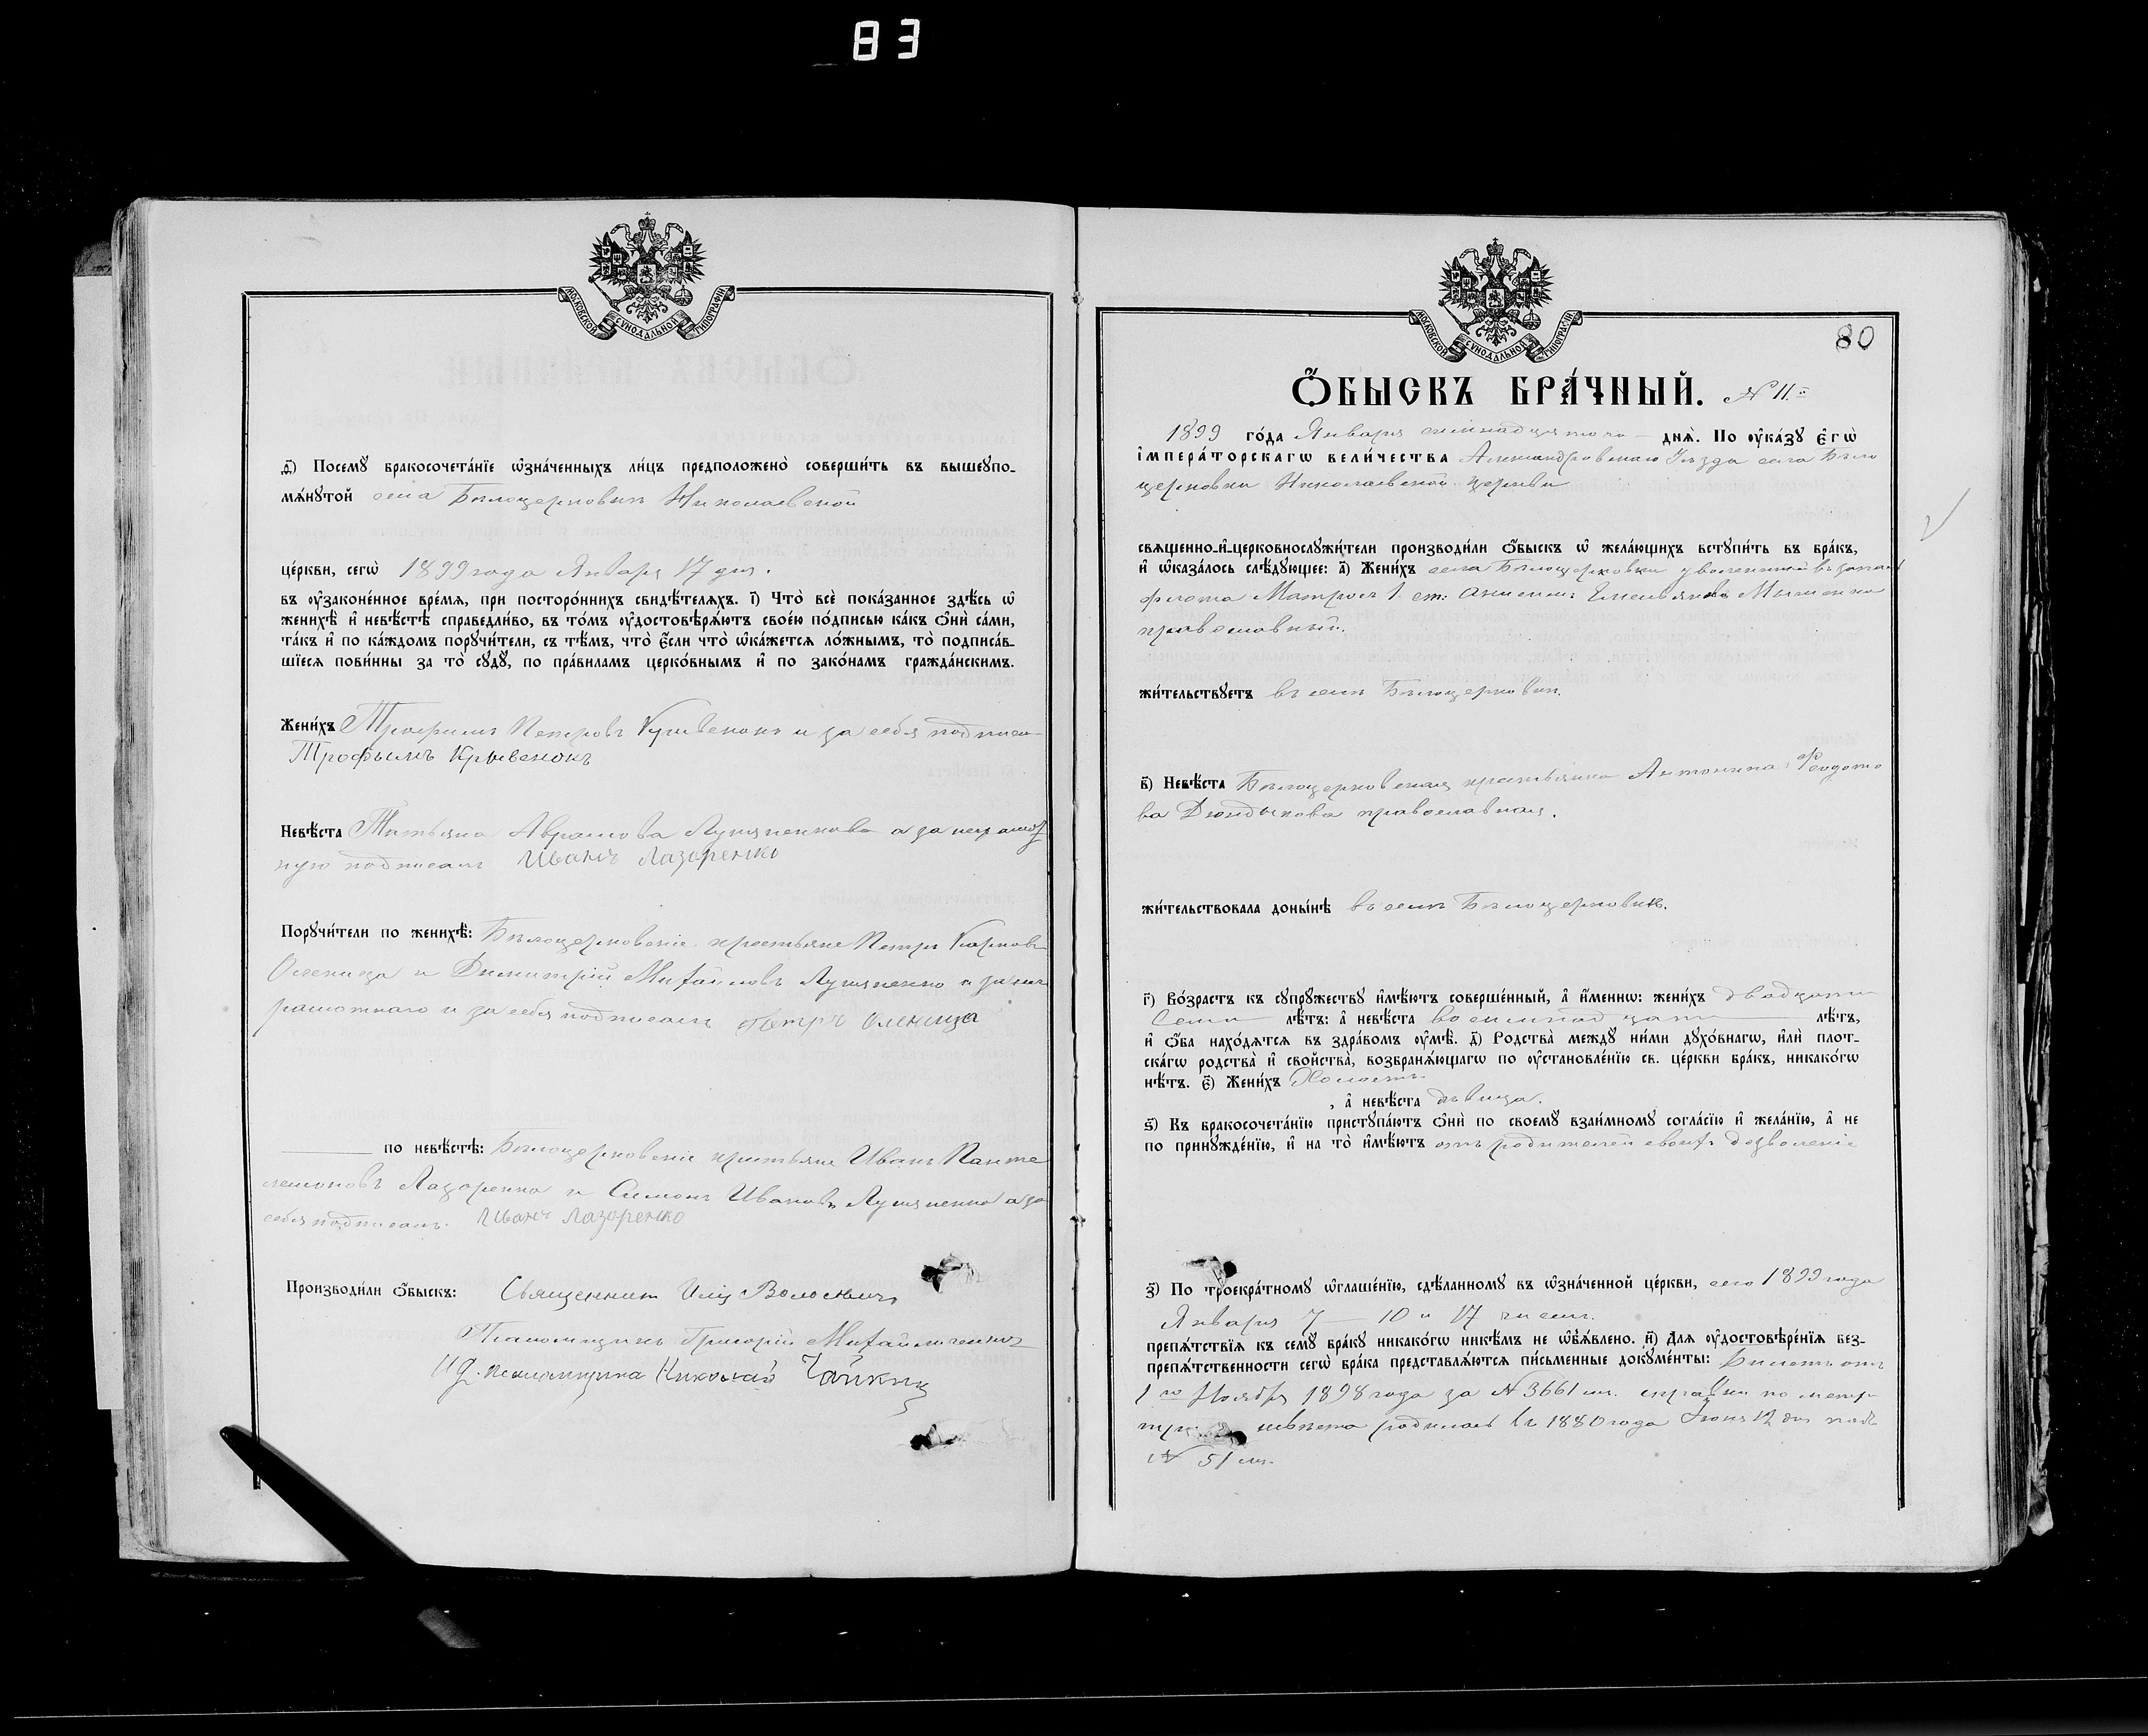 83
МОСКОВСКОЙ СУНОДАЛЬНОЙ ТИПОГРАФІИ
Посемꙋ̀ бракосочета́нїе ѡ҆зна́ченныхъ ли́цъ предположено̀ соверши́ть въ вышеупо-
мѧ́нꙋтой села Бѣлоцерковки Николаевской
це́ркви, сегѡ̀ 1899 года Января 17 дня.
въ ᲂу҆зако́ненное вре́мѧ, при посторо́ннихъ свидѣ́телѧхъ. і҃) Что̀ всѐ пока́занное здѣ́сь ѡ҆
женихѣ̀ и҆ невѣ́стѣ справедли́во, въ то́мъ ᲂу҆достовѣрѧ́ютъ свое́ю по́дписью ка́къ ѻ҆нѝ са́ми,
та́къ и҆ по ка́ждомъ порꙋчи́тели, съ тѣ́мъ, что̀ є҆́сли что̀ ѡ҆ка́жетсѧ ло́жнымъ, то̀ подписа́в-
шїесѧ пови́нны за то̀ сꙋдꙋ̀, по пра́виламъ церко́внымъ и҆ по зако́намъ гражда́нскимъ.
Жени́хъ Трофимъ Петровъ Кривенокъ и за себя подписа-
Трофымъ Крывенокъ
Невѣ́ста Татьяна Аврамова Лукяненкова а за неграмот
ную подписалъ Иванъ Лазоренко
Порꙋчи́тели по женихѣ̀: Бѣлоцерковскіе крестьяне Петръ Карповъ
Оленица и Димитрій Михайловъ Лукяненко а за нег
рамотнаго и за себя подписалъ Петръ Оленица
по невѣ́стѣ: Бѣлоцерковскіе крестьяне Иванъ Панте
леимоновъ Лазоренко и Симонъ Ивановъ Лукяненко а за
себя подписалъ Иванъ Лазоренко
Производи́ли ѻ҆́быскъ: Священникъ Илія
Псаломщикъ Григорій Михайличенко
И д. псаломщика Николай Чайкинъ
МОСКОВСКОЙ СУНОДАЛЬНОЙ ТИПОГРАФІИ
80
Ѻ҆́БЫСКЪ БРА́ЧНЫЙ. № 11й
1899 го́да Января семнадцятого днѧ̀. По ᲂу҆ка́зꙋ є҆гѡ̀
і҆мпера́торскагѡ вели́чества Александровскаго Уѣзда села Бѣло
церковки Николаевской церкви
свѧще́нно-и҆-церковнослꙋжи́тели производи́ли ѻ҆́быскъ ѡ҆ жела́ющихъ встꙋпи́ть въ бра́къ,
и҆ ѡ҆каза́лось слѣ́дꙋющее: а҃) Жени́хъ села Бѣлоцерковки уволенный въ запасъ
флота Матросъ 1. ст: Емельяновъ
православный.
жи́тельствꙋетъ въ селѣ Бѣлоцерковкѣ.
в҃) Невѣ́ста Бѣлоцерковская крестьянка Антонина Ѳеодото
ва Дюндыкова православная.
жи́тельствовала доны́нѣ въ селѣ Бѣлоцерковкѣ.
г҃) Во́зрастъ къ сꙋпрꙋ́жествꙋ и҆мѣ́ютъ соверше́нный, а҆ и҆́менно: жени́хъ двадцати
семи лѣ́тъ: а҆ невѣ́ста восемнадцати лѣ́тъ,
и҆ ѻ҆́ба нахо́дѧтсѧ въ здра́вомъ ᲂу҆мѣ̀. д҃) Родства̀ междꙋ̀ ни́ми дꙋхо́внагѡ, и҆лѝ плот-
ска́гѡ родства̀ и҆ сво́йства, возбранѧ́ющагѡ по ᲂу҆становле́нїю св. це́ркви бра́къ, никако́гѡ
нѣ́тъ. є҃) Жени́хъ Холостъ
, а҆ невѣ́ста дѣвица.
ѕ҃) Къ бракосочета́нїю пристꙋпа́ютъ ѻ҆нѝ по своемꙋ̀ взаи́мномꙋ согла́сїю и҆ жела́нїю, а҆ не
по принꙋжде́нїю, и҆ на то̀ и҆мѣ́ютъ отъ родителей своихъ дозволеніе
з҃) По троекра́тномꙋ ѡ҆глаше́нїю, сдѣ́ланномꙋ въ ѡ҆зна́ченной це́ркви, сего 1899 года
Января 7 — 10 и 17 чиселъ.
препѧ́тствїѧ къ семꙋ̀ бра́кꙋ никако́гѡ никѣ́мъ не ѡ҆б̾ѧ́влено. и҃) Длѧ ᲂу҆достовѣре́нїѧ без-
препѧ́тственности сегѡ̀ бра́ка представлѧ́ютсѧ пи́сьменные докꙋме́нты: Билетъ отъ
1го Ноября 1898 года за № 3661мъ. справки по метр
невѣста родилась въ 1880 года Іюня 12 дня подъ
№ 51мъ.